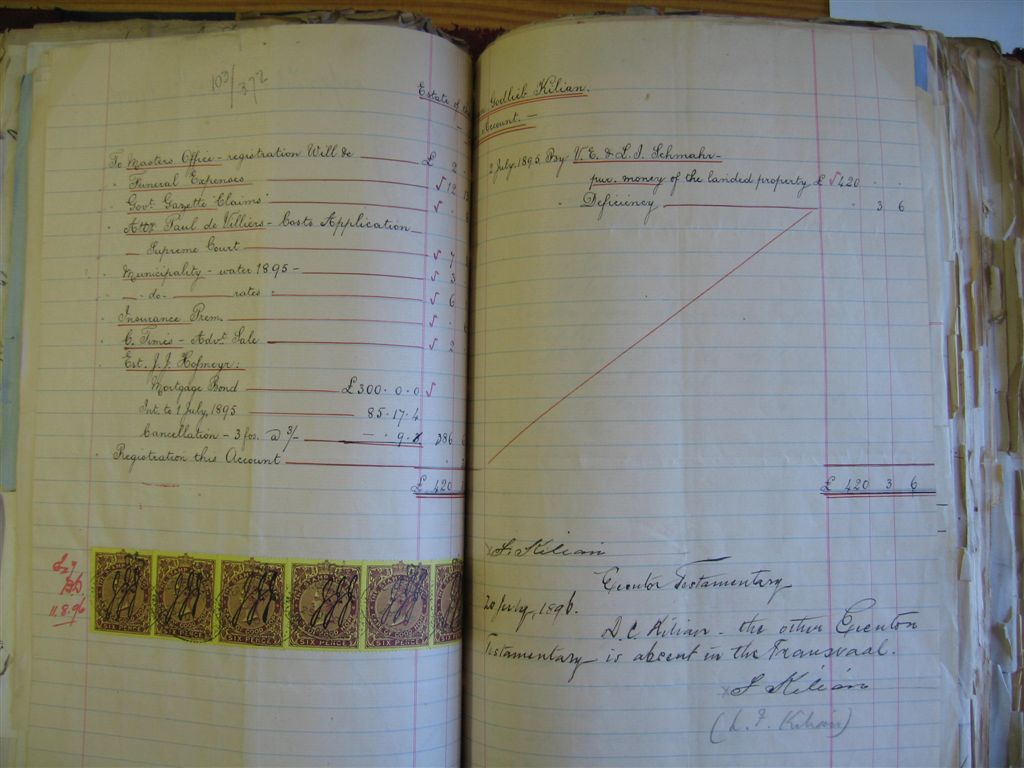 103/372
Estate of
To Masters Office - registration Will &c £ 2
" Funeral Expenses √12
" Govt Gazette Claims √
" Atty Paul de Villiers - Costs Application
Supreme Court √ 7
" Municipality - water 1895 - √ 3
" - do - rates √ 6
" Insurance Prem. √
" C. Times - Advt Sale √ 2
" Est. J. J. Hofmeyr:
Mortgage Bond £300. 0. 0 √
Int. to 1 July, 1895 85. 17. 4
Cancellation - 3 fos. @ 3/- - . 9. 386
" Registration this Account
£ 420
11.8.96
SIX PENCE
SIX PENCE
SIX PENCE
SIX PENCE
SIX PENCE
Godlieb Kilian.
Account. -
2 July, 1895 By V. E. & L. I. Schmahr -
pur. money of the landed property £ √420 . .
" Deficiency . 3 6
£ 420 3 6
Kilian
Executor Testamentary
20 July, 1896.
D. C. Kilian - the other Executor
Testamentary is absent in the Transvaal.
Kilian
(L. F. Kilian)